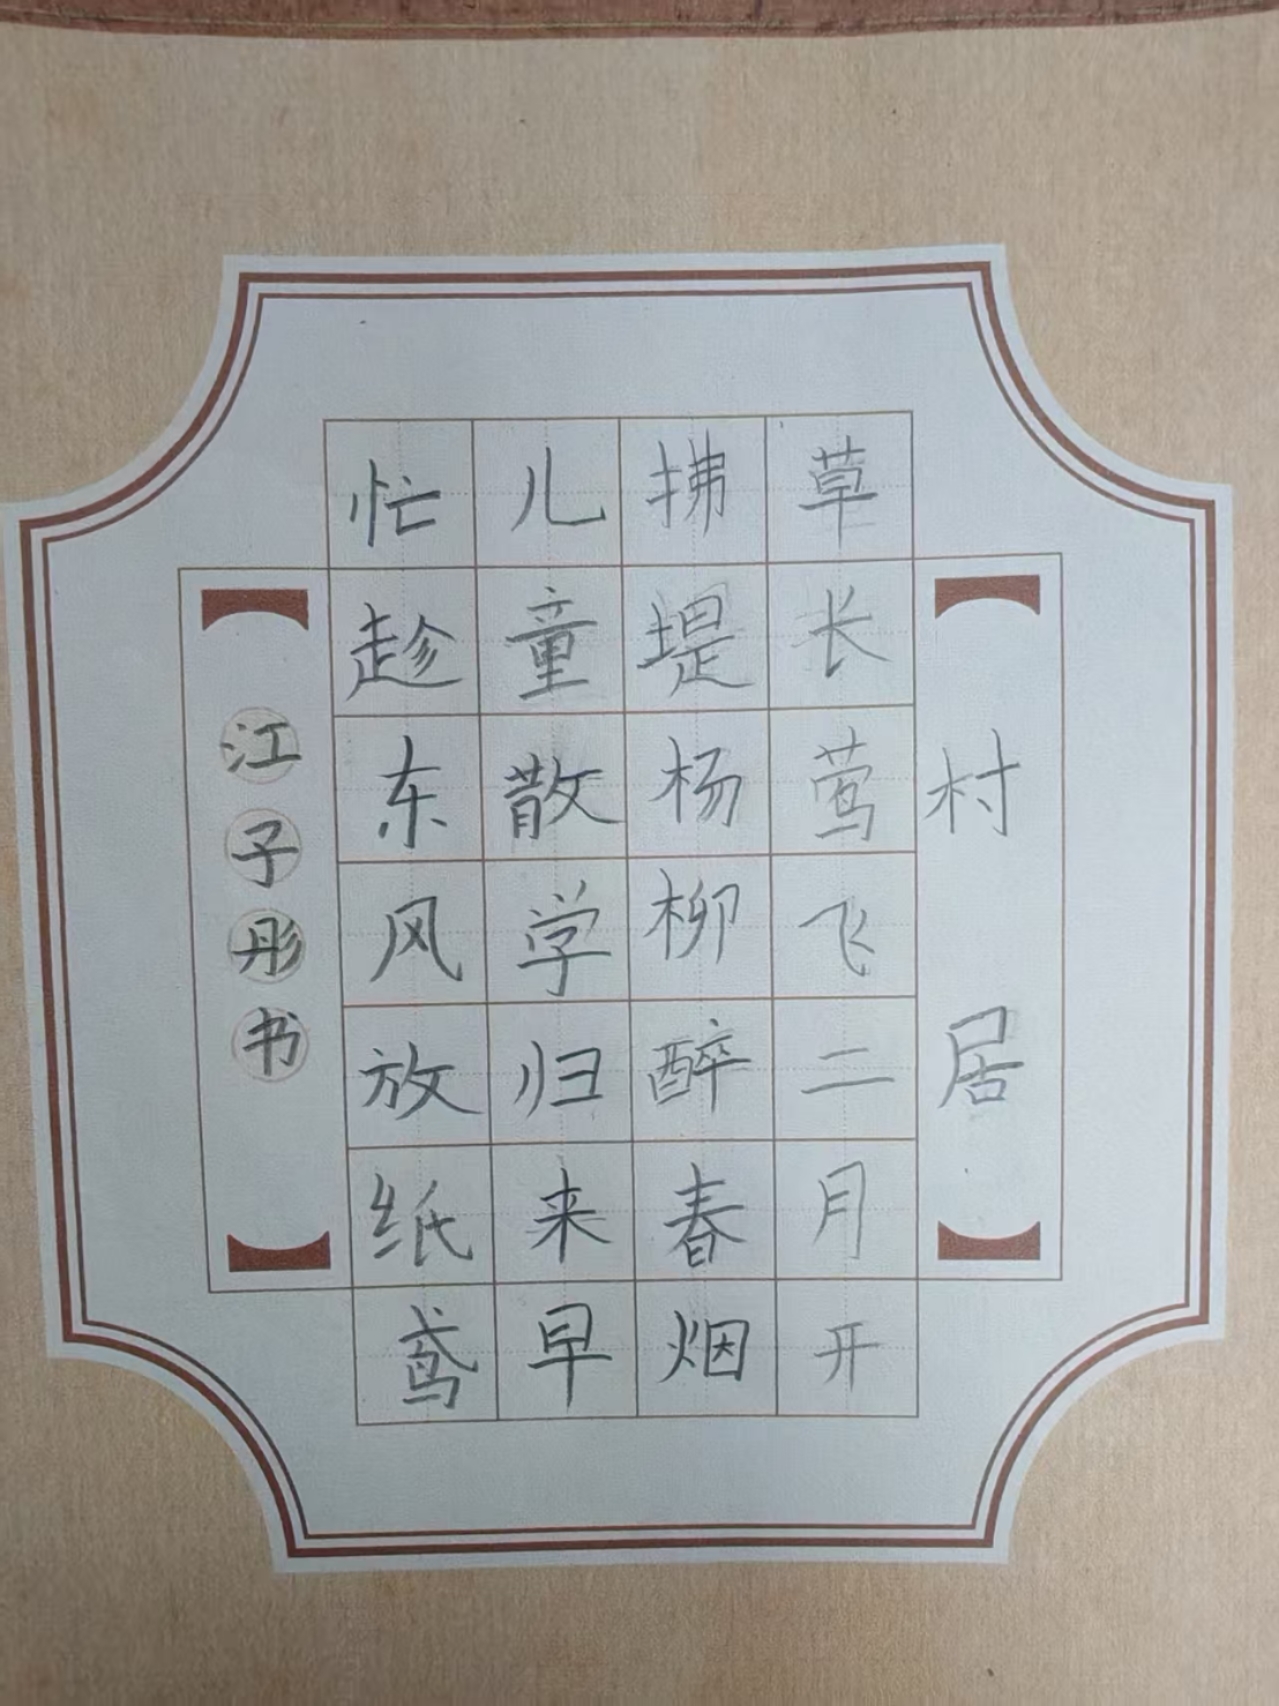 村居
草长莺飞二月开
拂堤杨柳醉春烟
儿童散学归来早
忙趁东风放纸鸢
江子彤书